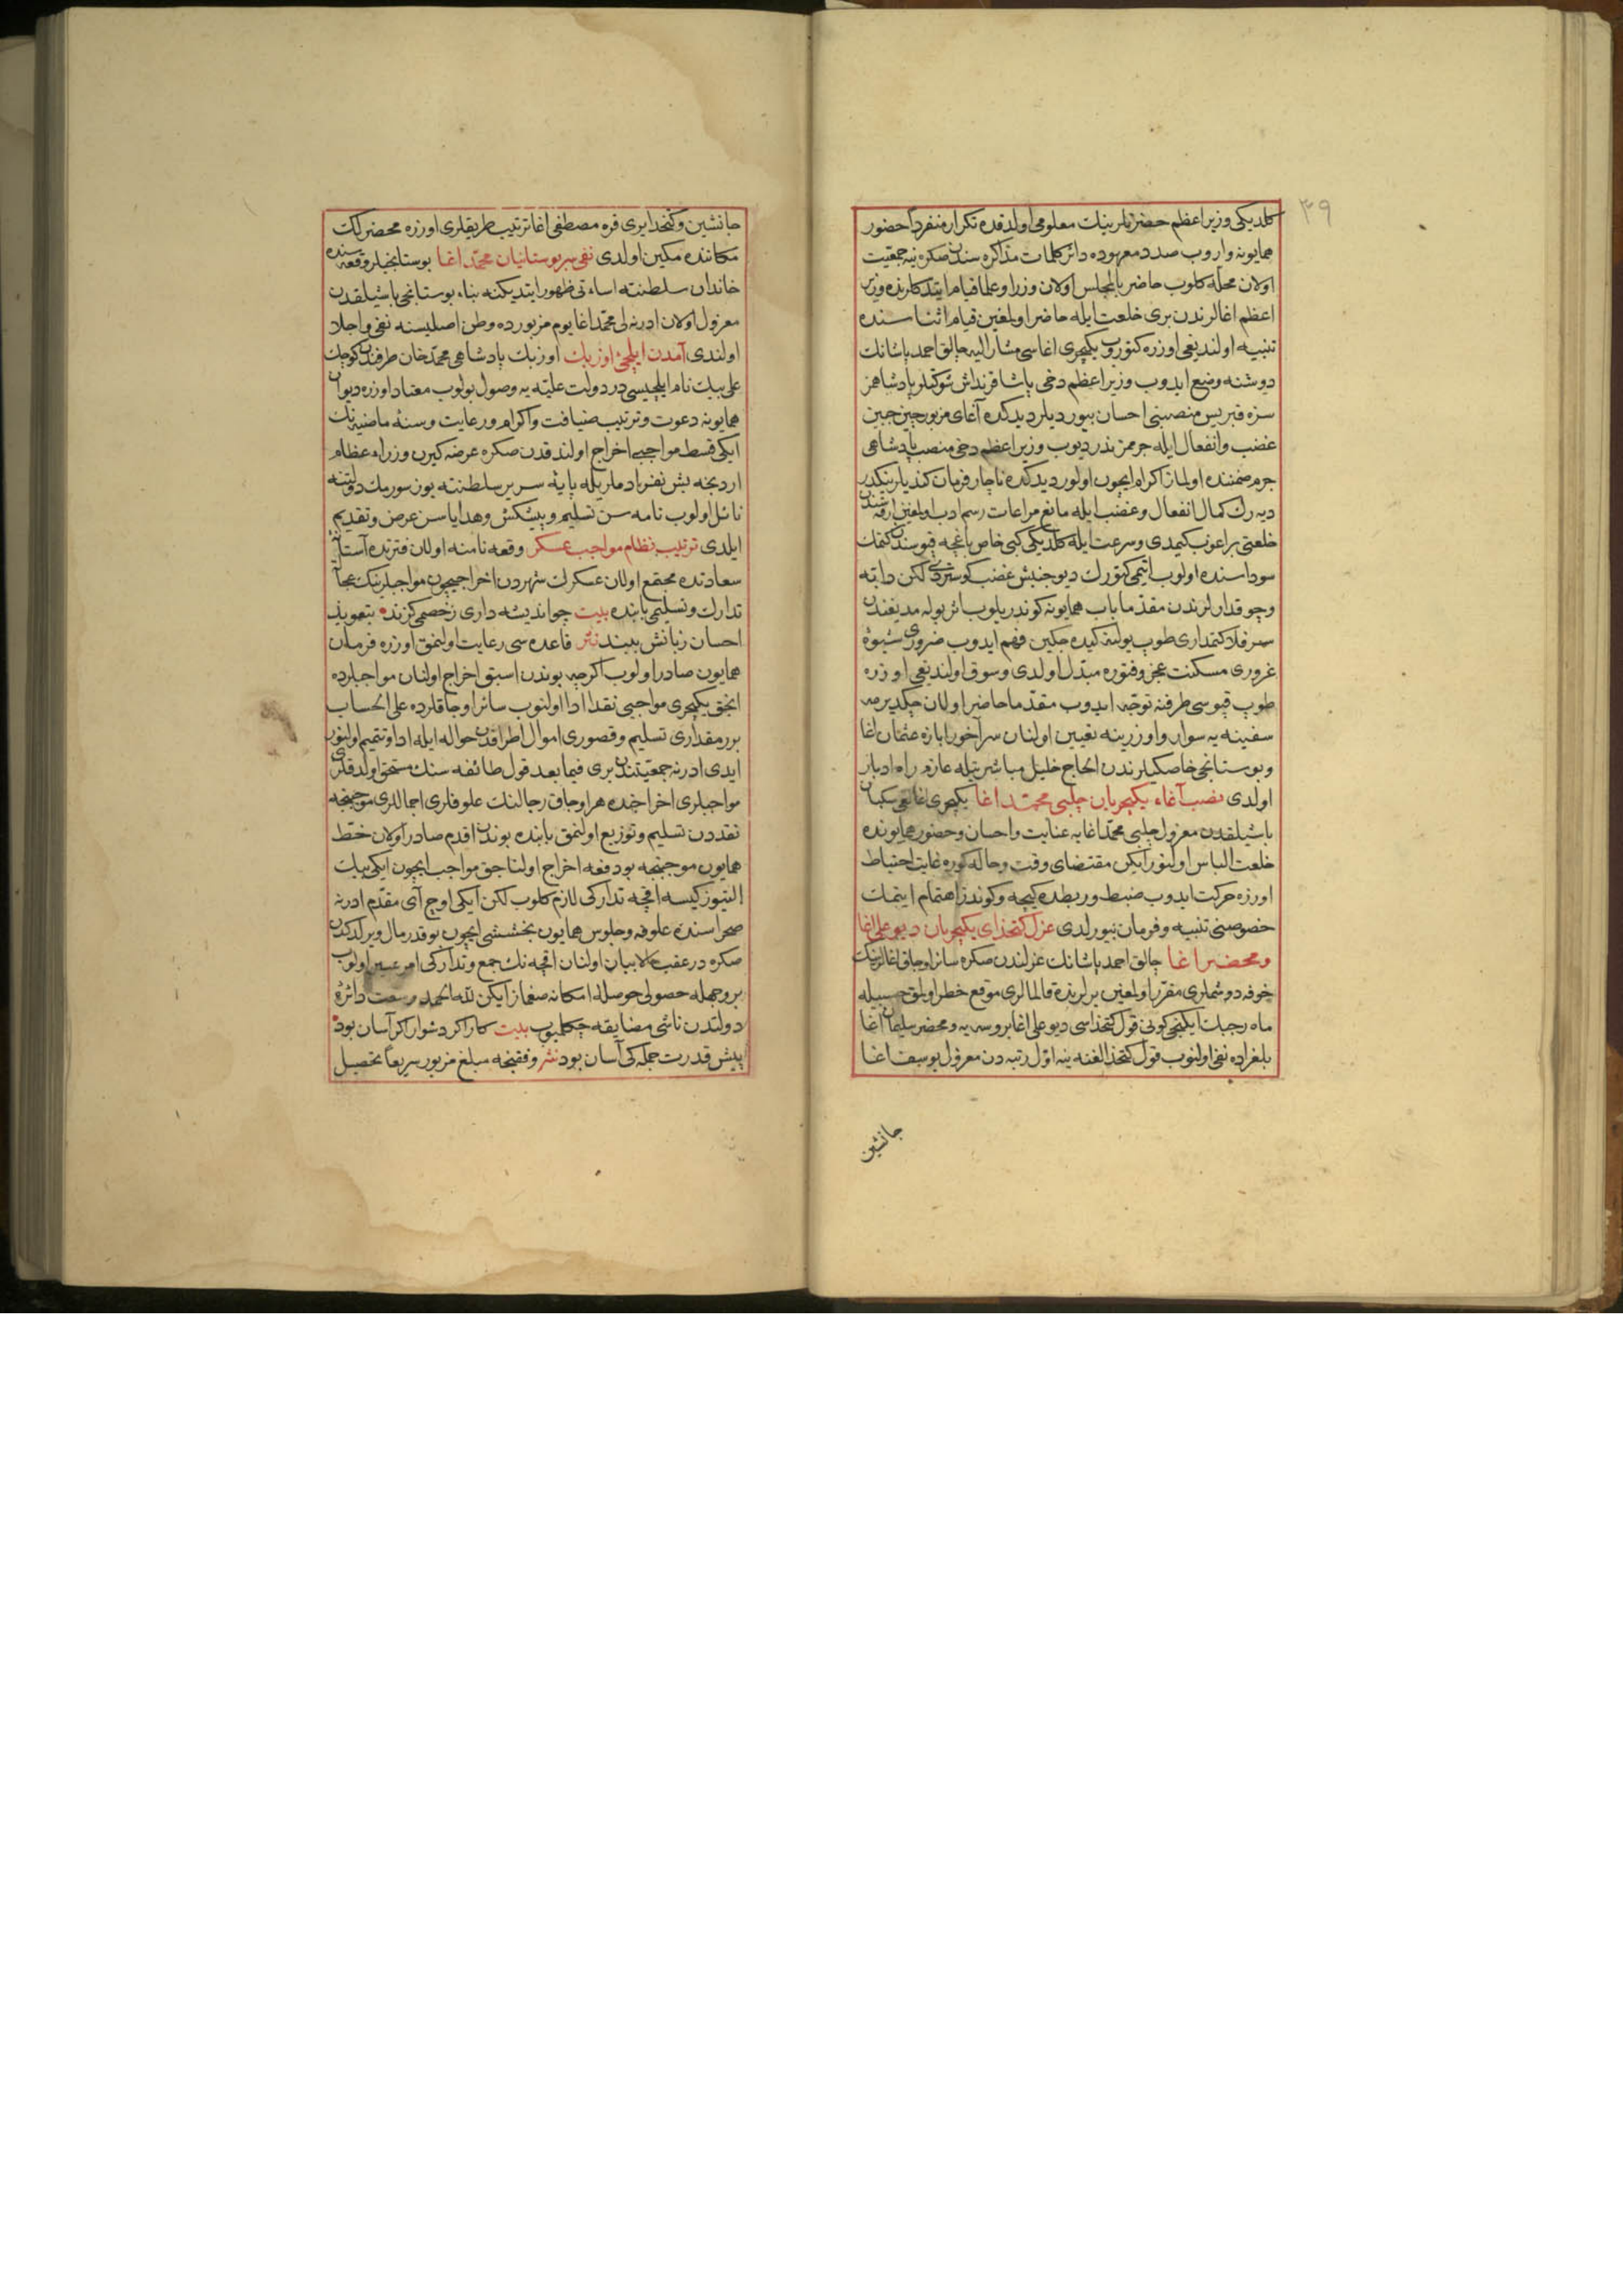 ٣٩
كلديكى وزير اعظم حضرتلرينك معلومى اولدقده تكرار منفردا حضور
همايونه واروب صدد معهوده دائر كلمات مذاكره سندن صكره ينه جمعيت
اولان محله كلوب حاضر بالمجلس اولان وزرا و علما قيام ايتدكلرنده وزير
اعظم اغالرندن برى خلعت ايله حاضر اولمغين قيام اثناسنده
تنبيه اولنديغى اوزره كتوروب يكيچرى اغاسى مشار اليه چالق احمد پاشانك
دوشنه وضع ايدوب وزير اعظم دخى پاشا قرنداش شوكتلو پادشاهمز
سزه قبريس منصبنى احسان بيورديلر ديدكده آغاى مزبور چين جبين
غضب وانفعال ايله جرممز ندر ديوب وزير اعظم دخى منصب پادشاهى
جرم ضمننده اولماز اكرام ايچون اولور ديدكده ناچار فرمان كنديلرينكدر
ديه رك كمال انفعال وغضب ايله مانع مراعات رسم ادب اولمغين ارقه سندن
خلعتى براغوب كيمدى وسرعت ايله كلديكى كبى خاص باغچه قپوسندن كتمك
سوداسنده اولوب اتيمى كتورك ديو جنبش غضب كوستردى لكن دابه
وچوقدارلرندن مقدما باب همايونه كوندريلوب
سمر فلاكتمدارى طوپ يولنه كيده جكين فهم ايدوب ضرورى شيوۀ
غرورى مسكنت عجز وفتوره مبدل اولدى وسوق اولنديغى اوزره
طوپ قپوسى طرفنه توجه ايدوب مقدما حاضر اولان چكديرمه
سفينه يه سوار واوزرينه تعيين اولنان سرآخور ابازه عثمان اغا
وبوستانجى خاصكيلرندن الحاج خليل مباشرتيله عازم راه ادبار
اولدى نصب آغاء يكيچريان چلبى محمد اغا يكيچرى اغالغى سكبان
باشيلقدن معزول چلبى محمد اغايه عنايت واحسان وحضور همايونده
خلعت الباس اولنور ايكن مقتضاى وقت وحاله كوره غايت احتياط
اوزره حركت ايدوب ضبط وربطده كيجه وكوندز اهتمام ايتمك
خصوصنى تنبيه وفرمان بيورلدى عزل كتخداى يكيچريان ديو على اغا
ومحضر اغا چالق احمد پاشانك عزلندن صكره سائر اوجاق اغالرينك
خوفه دوشملرى مقرر اولمغين يرلرنده قالمالرى موقع خطر اولمق حسبيله
ماه رجبك ايكنجى كونى قول كتخداسى ديو على اغا بروسه يه ومحضر سليمان اغا
بلغراده نفى اولنوب قول كتخدالغنه ينه اول رتبه دن معزول يوسف اغا
جانشين
جانشين وكتخدا يرى قره مصطفى اغا ترتيب طريقلرى اوزره محضرلك
مكاننده مكين اولدى نفى سر بوستانيان محمد اغا بوستانجيلر وقعه سنده
خاندان سلطنته اساءتى ظهور ايتديكنه بناء بوستانجى باشيلقدن
معزول اولان ادرنه لى محمد اغا يوم مزبورده وطن اصليسنه نفى واجلا
اولندى آمدن ايلچئ اوزبك اوزبك پادشاهى محمد خان طرفندن كوچك
على بيك نام ايلچيسى در دولت عليه يه وصول بولوب معتاد اوزره ديوان
همايونه دعوت وترتيب ضيافت واكرام ورعايت وسنۀ ماضيه نك
ايكى قسط مواجبى اخراج اولندقدن صكره عرضه كيرن وزراء عظام
اردنجه بش نفر ادملريله پايۀ سرير سلطنته يوز سورمك دولتنه
نائل اولوب نامه سن تسليم وپيشكش وهداياسن عرض وتقديم
ايلدى ترتيب نظام مواجب عسكر وقعه نامنه اولان فترتده آستانۀ
سعادتده مجتمع اولان عسكرك شهردن اخراجيچون مواجبلرينك
تدارك وتسليمى بابنده بيت چو انديشه دارى ز خصمى گزند بتعويذ
احسان زبانش ببند نثر قاعده سى رعايت اولنمق اوزره فرمان
همايون صادر اولوب اكرچه بوندن اسبق اخراج اولنان مواجبلرده
انجق يكيچرى مواجبى نقدا ادا اولنوب سائر اوجاقلرده على الحساب
برر مقدارى تسليم وقصورى اموال اطرافدن حواله ايله ادا وتتميم اولنور
ايدى ادرنه جمعيتندن برى فيما بعد قول طائفه سنك مستحق اولدقلرى
مواجبلرى اخراجنده هر اوجاق رجالنك علوفه لرى اجماللرى موجبنجه
نقددن تسليم وتوزيع اولنمق بابنده بوندن اقدم صادر اولان خط
همايون موجبنجه بو دفعه اخراج اولناجق مواجب ايچون ايكى بيك
التيوز كيسه اقچه تداركى لازم كلوب لكن ايكى اوچ آى مقدم ادرنه
صحراسنده علوفه وجلوس همايون بخششى ايچون بو قدر مال ويرلدكدن
صكره در عقب بيان اولنان اقچه نك جمع وتداركى امر عسير اولوب
بر وجهله حصولى حوصلۀ امكانه صغماز ايكن لله الحمد وسعت دائرۀ
دولتدن ناشى مضايقه چكلميوب بيت كار اگر دشوار اگر آسان بود
پيش قدرت جملگى آسان بود نثر وفقنجه مبلغ مزبور سريعا تحصيل